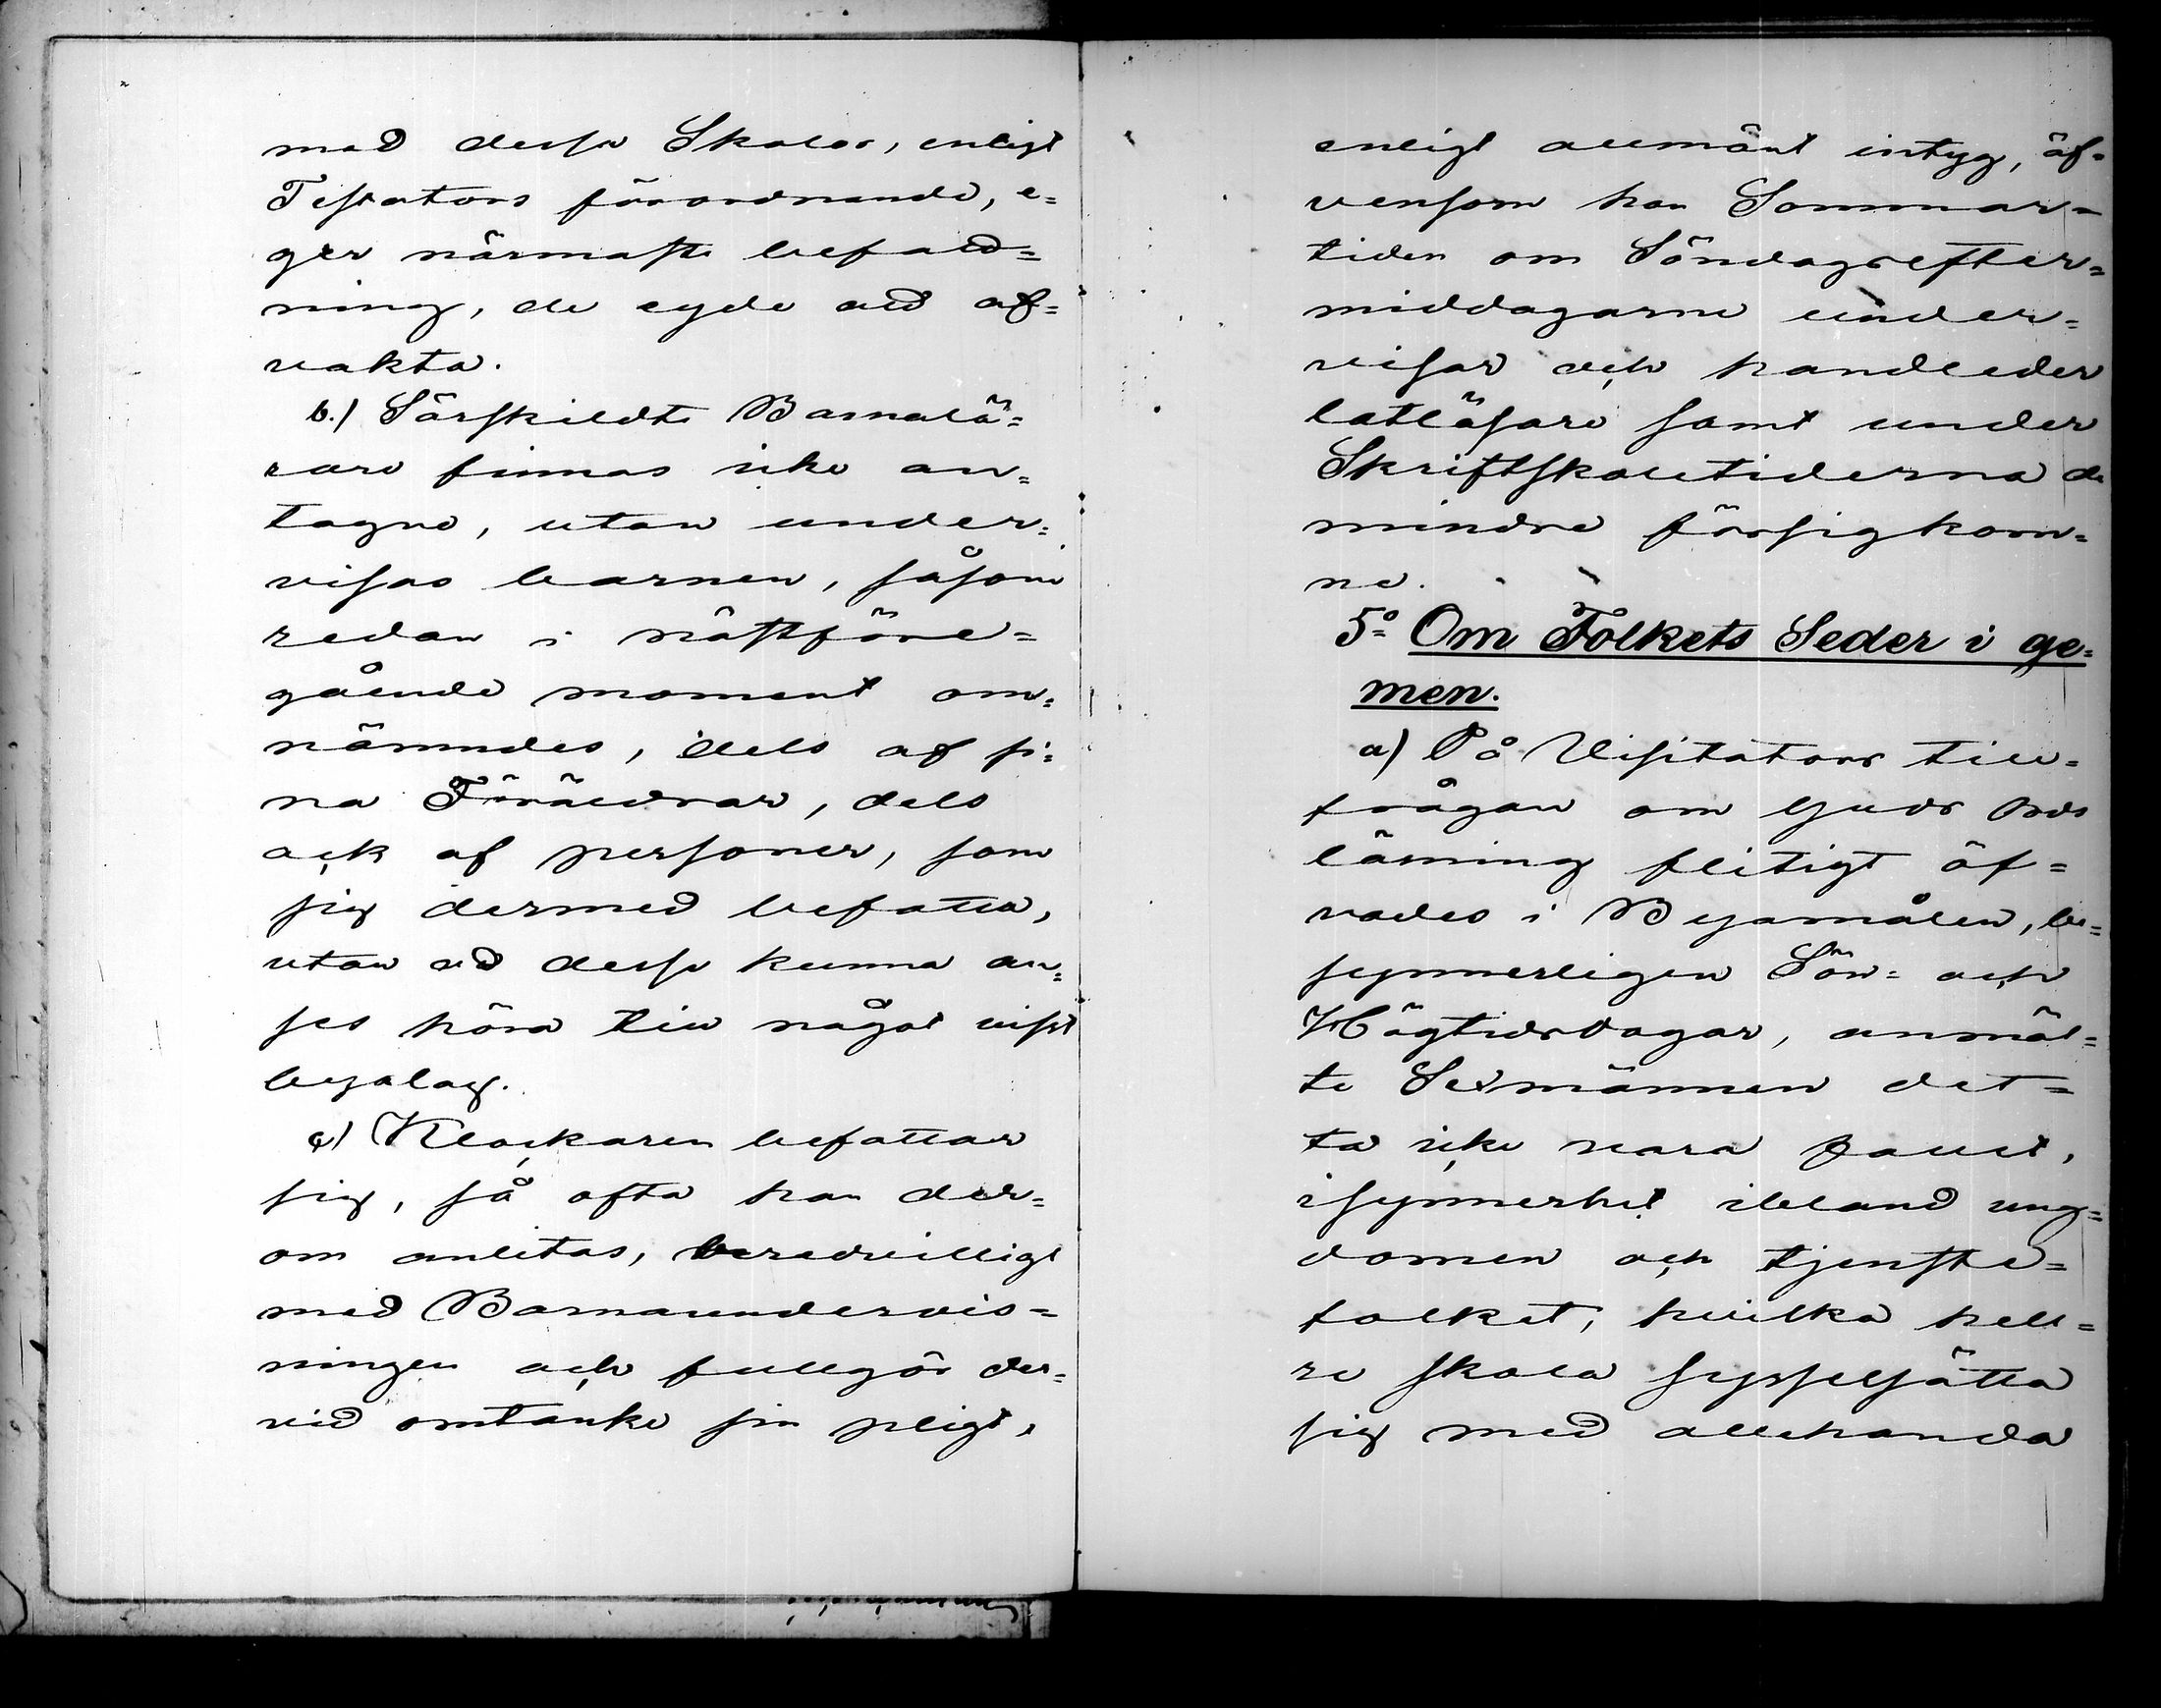 med dessa Skolor, enligt
Testators förordnande, e=
ger närmaste befatt=
ning, de egde att af=
vakta.
b.) Särskildte Barnalä=
rare finnas icke an=
tagne, utan under=
visas barnen, såsom
redan i nästföre=
gående moment om=
nämndes, dels af si=
na Föräldrar, dels
ock af personer, som
sig dermed befatta,
utan att desse kunna an=
ses höra till något visst
byalag.
c) Klockaren befattar
sig, så ofta han der=
om anlitas, beredvilligt
med Barnaundervis=
ningen och fullgör der=
vid omtänke sin pligt,
enligt allmänt intyg, äf=
vensom han Sommar=
tiden om Söndagsefter=
middagarne under=
visar och handleder
latläsare samt under
Skriftskoletiderna de
mindre försigkom=
ne.
5º Om Folkets Seder i ge=
men.
a) På Visitators till=
frågan om Guds Ords
läsning flitigt öf=
vades i Byamålen, be=
synnerligen Sön= och
Högtidsdagar, anmäl=
te Sexmännen det=
ta icke vara fallet,
isynnerhet ibland ung=
domen och tjenste=
folket, hvilka hell=
re skola sysselsätta
sig med allehanda